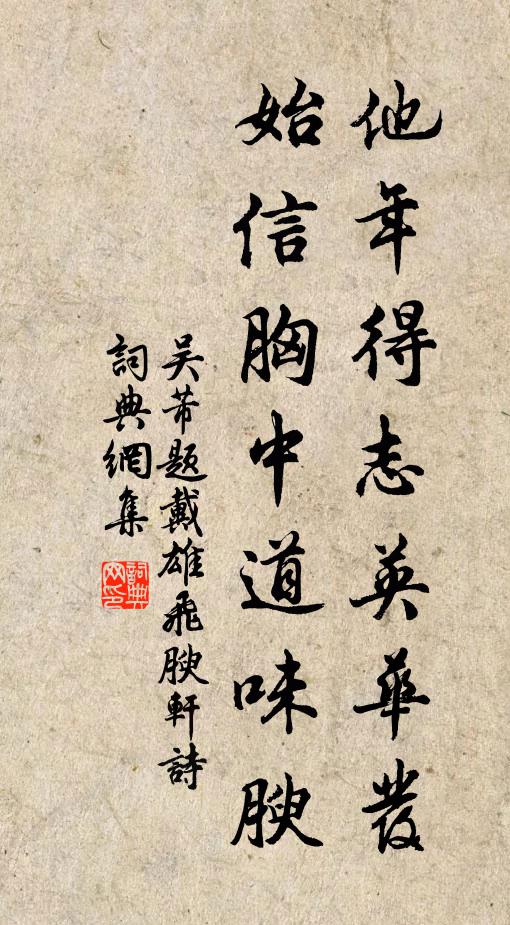 他年得志英華發
始信胸中道味腴
吴芾題戴雄飛腴軒詩
詞典網集
詞典
网印